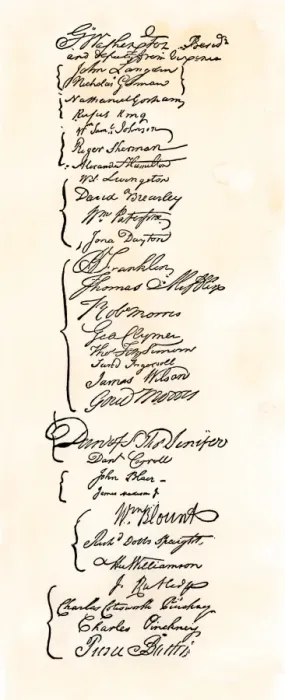 Go Washington Presidt
and deputy from Virginia
John Langdon
Nicholas Gilman
Nathaniel Gorham
Rufus King
Wm Saml Johnson
Roger Sherman
Alexander Hamilton
Wil Livingston
David Brearley
Wm Paterson
Jona Dayton
B Franklin
Thomas Mifflin
Robt Morris
Geo Clymer
Thos FitzSimons
Jared Ingersoll
James Wilson
Gouv Morris
Dan of St Thos Jenifer
Danl Carroll
John Blair
James Madison Jr
Wm Blount
Richd Dobbs Spaight
Hu Williamson
J Rutledge
Charles Cotesworth Pinckney
Charles Pinckney
Pierce Butler